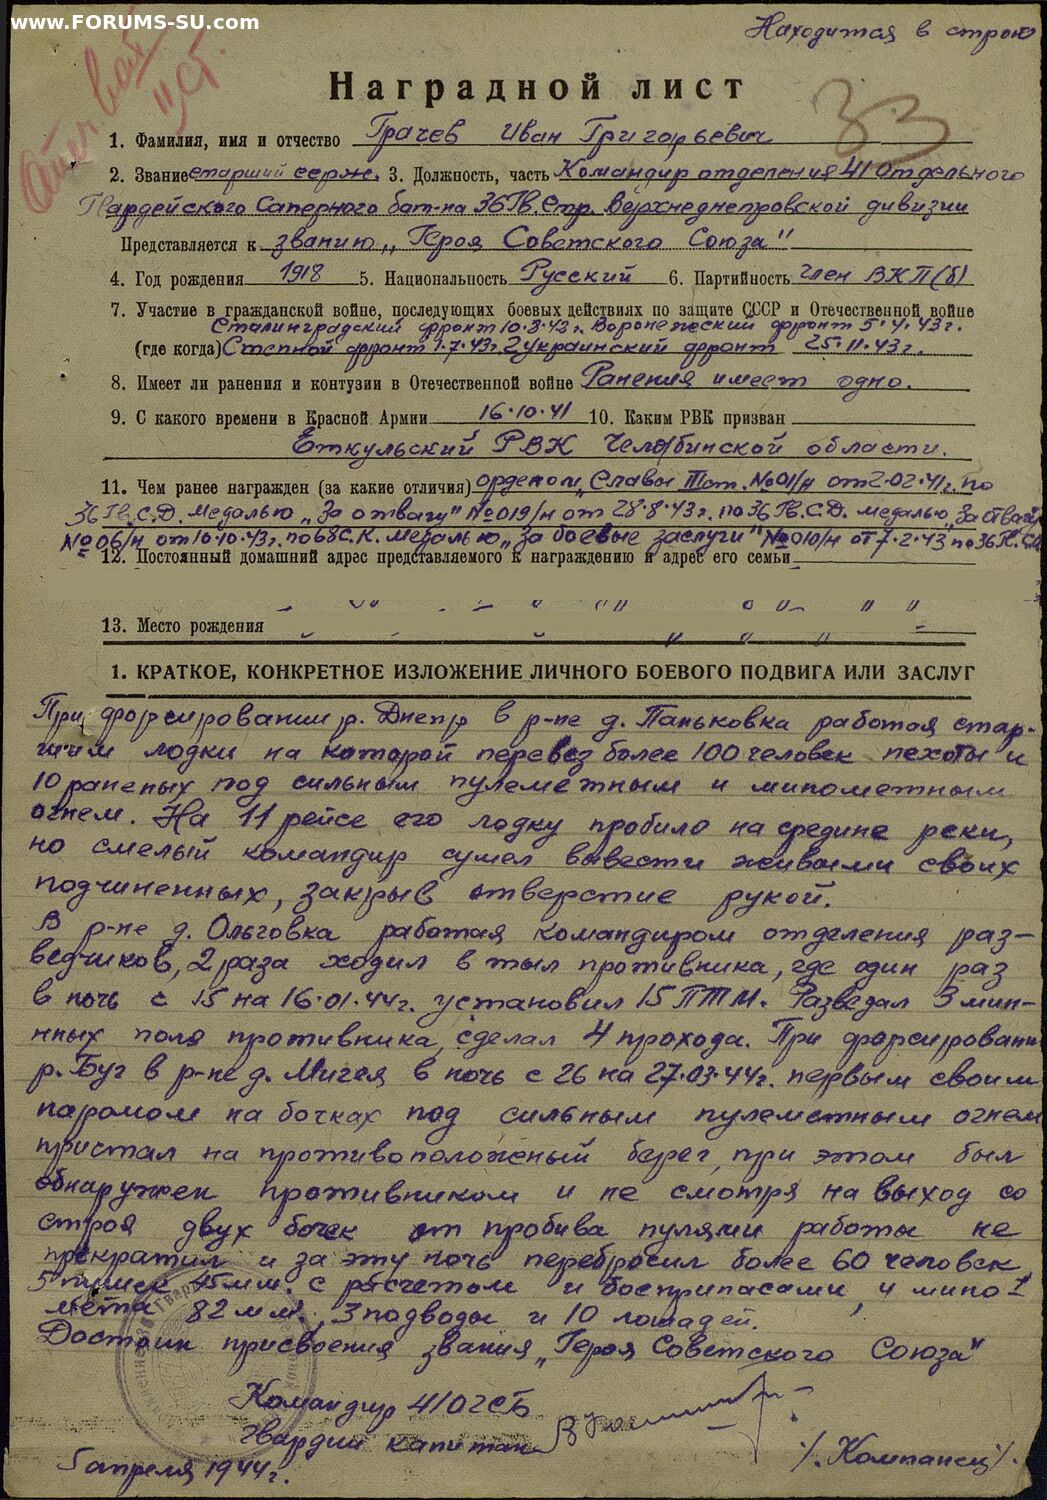 www.FORUMS-SU.com
Находится в строю
Отечвой
II ст.
33
Наградной лист
1. Фамилия, имя и отчество Грачев Иван Григорьевич
2. Звание старший серж. 3. Должность, часть Командир отделения 41 отдельного
Гвардейского Саперного бат-на 36 Гв. Стр. Верхнеднепровской дивизии
Представляется к званию „Героя Советского Союза"
4. Год рождения 1918 5. Национальность Русский 6. Партийность член ВКП(б)
7. Участие в гражданской войне, последующих боевых действиях по защите СССР и Отечественной войне
Сталинградский фронт 10.8.42 г. Воронежский фронт 5.4.43 г.
(где когда) Степной фронт 1.7.43 г. 2 украинский фронт 25.11.43 г.
8. Имеет ли ранения и контузии в Отечественной войне Ранения имеет одно.
9. С какого времени в Красной Армии 16.10.41 10. Каким РВК призван
Еткульский РВК Челябинской области.
11. Чем ранее награжден (за какие отличия) орденом „Славы III ст. №01/н от 2.02.41 г. по
36 Гв.С.Д. медалью „За отвагу" №019/н от 28.8.43 г. по 36 Гв.С.Д. медалью „За отвагу
№06/н от 10.10.43 г. по 68 С.К. медалью „за боевые заслуги" №010/н от 7.2.43 по 36 Гв. СД
12. Постоянный домашний адрес представляемого к награждению и адрес его семьи
13. Место рождения
1. КРАТКОЕ, КОНКРЕТНОЕ ИЗЛОЖЕНИЕ ЛИЧНОГО БОЕВОГО ПОДВИГА ИЛИ ЗАСЛУГ
При форсировании р. Днепр в р-не д. Паньковка работая стар-
шим лодки на которой перевез более 100 человек пехоты и
10 раненых под сильным пулеметным и минометным
огнем. На 11 рейсе его лодку пробило на средине реки,
но смелый командир сумел вывести живыми своих
подчиненных, закрыв отверстие рукой.
В р-не д. Ольговка работая командиром отделения раз-
ведчиков, 2 раза ходил в тыл противника, где один раз
в ночь с 15 на 16.01.44 г. установил 15 ПТМ. Разведал 3 мин-
нных поля противника, сделал 4 прохода. При форсировани
р. Буг в р-не д. Мигея в ночь с 26 на 27.03.44 г. первым своим
паромом на бочках под сильным пулеметным огнем
пристал на противоположеный берег, при этом был
обнаружен противником и не смотря на выход со
строя двух бочек от пробива пулями работы не
прекратил и за эту ночь перебросил более 60 человек,
5 пушек 45 мм. с расчетом и боеприпасами, 4 мино-
мета 82 мм., 3 подводы и 10 лошадей.
Достоин присвоения звания „Героя Советского Союза"
Командир 41 ОГСБ
гвардии капитан
/. Компанец/.
5 апреля 1944 г.